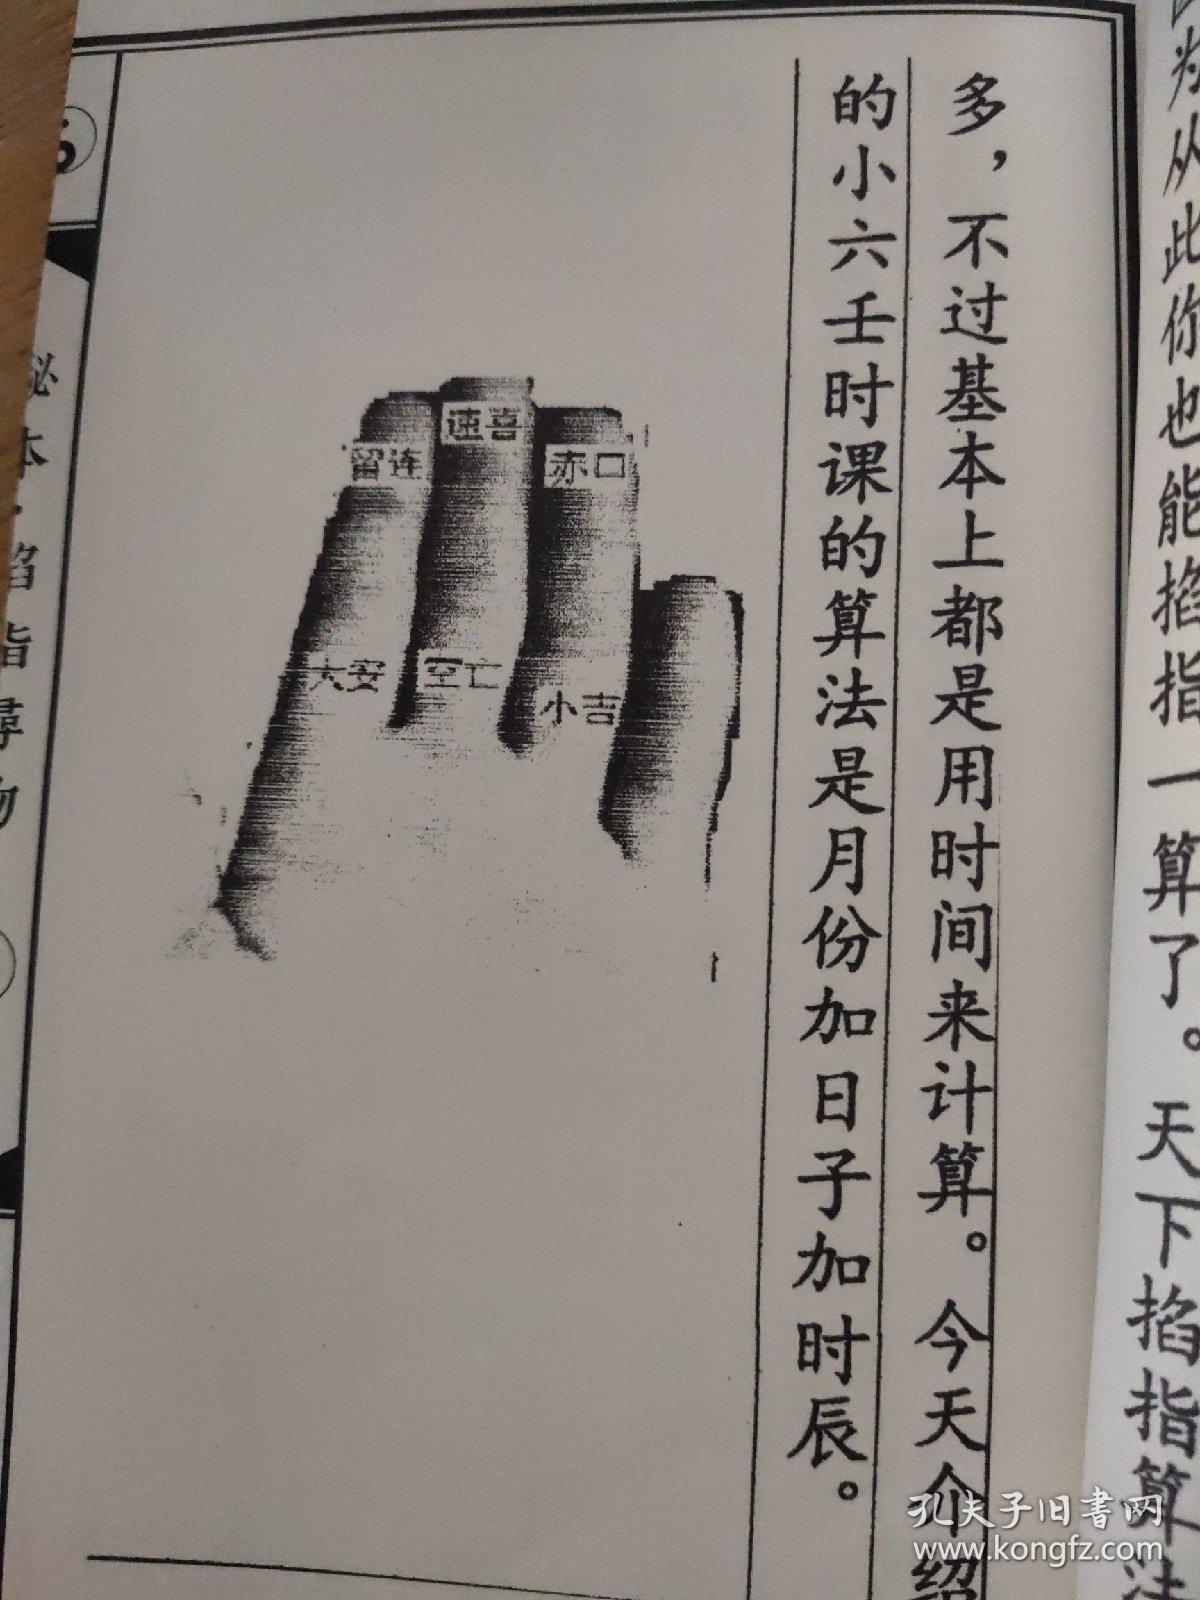 为从此你也能掐指一算了。天下掐指算法
多，不过基本上都是用时间来计算。今天介绍
的小六壬时课的算法是月份加日子加时辰。
留连
速喜
赤口
大安
空亡
小吉
本·掐指尋物
孔夫子旧书网
www.kongfz.com